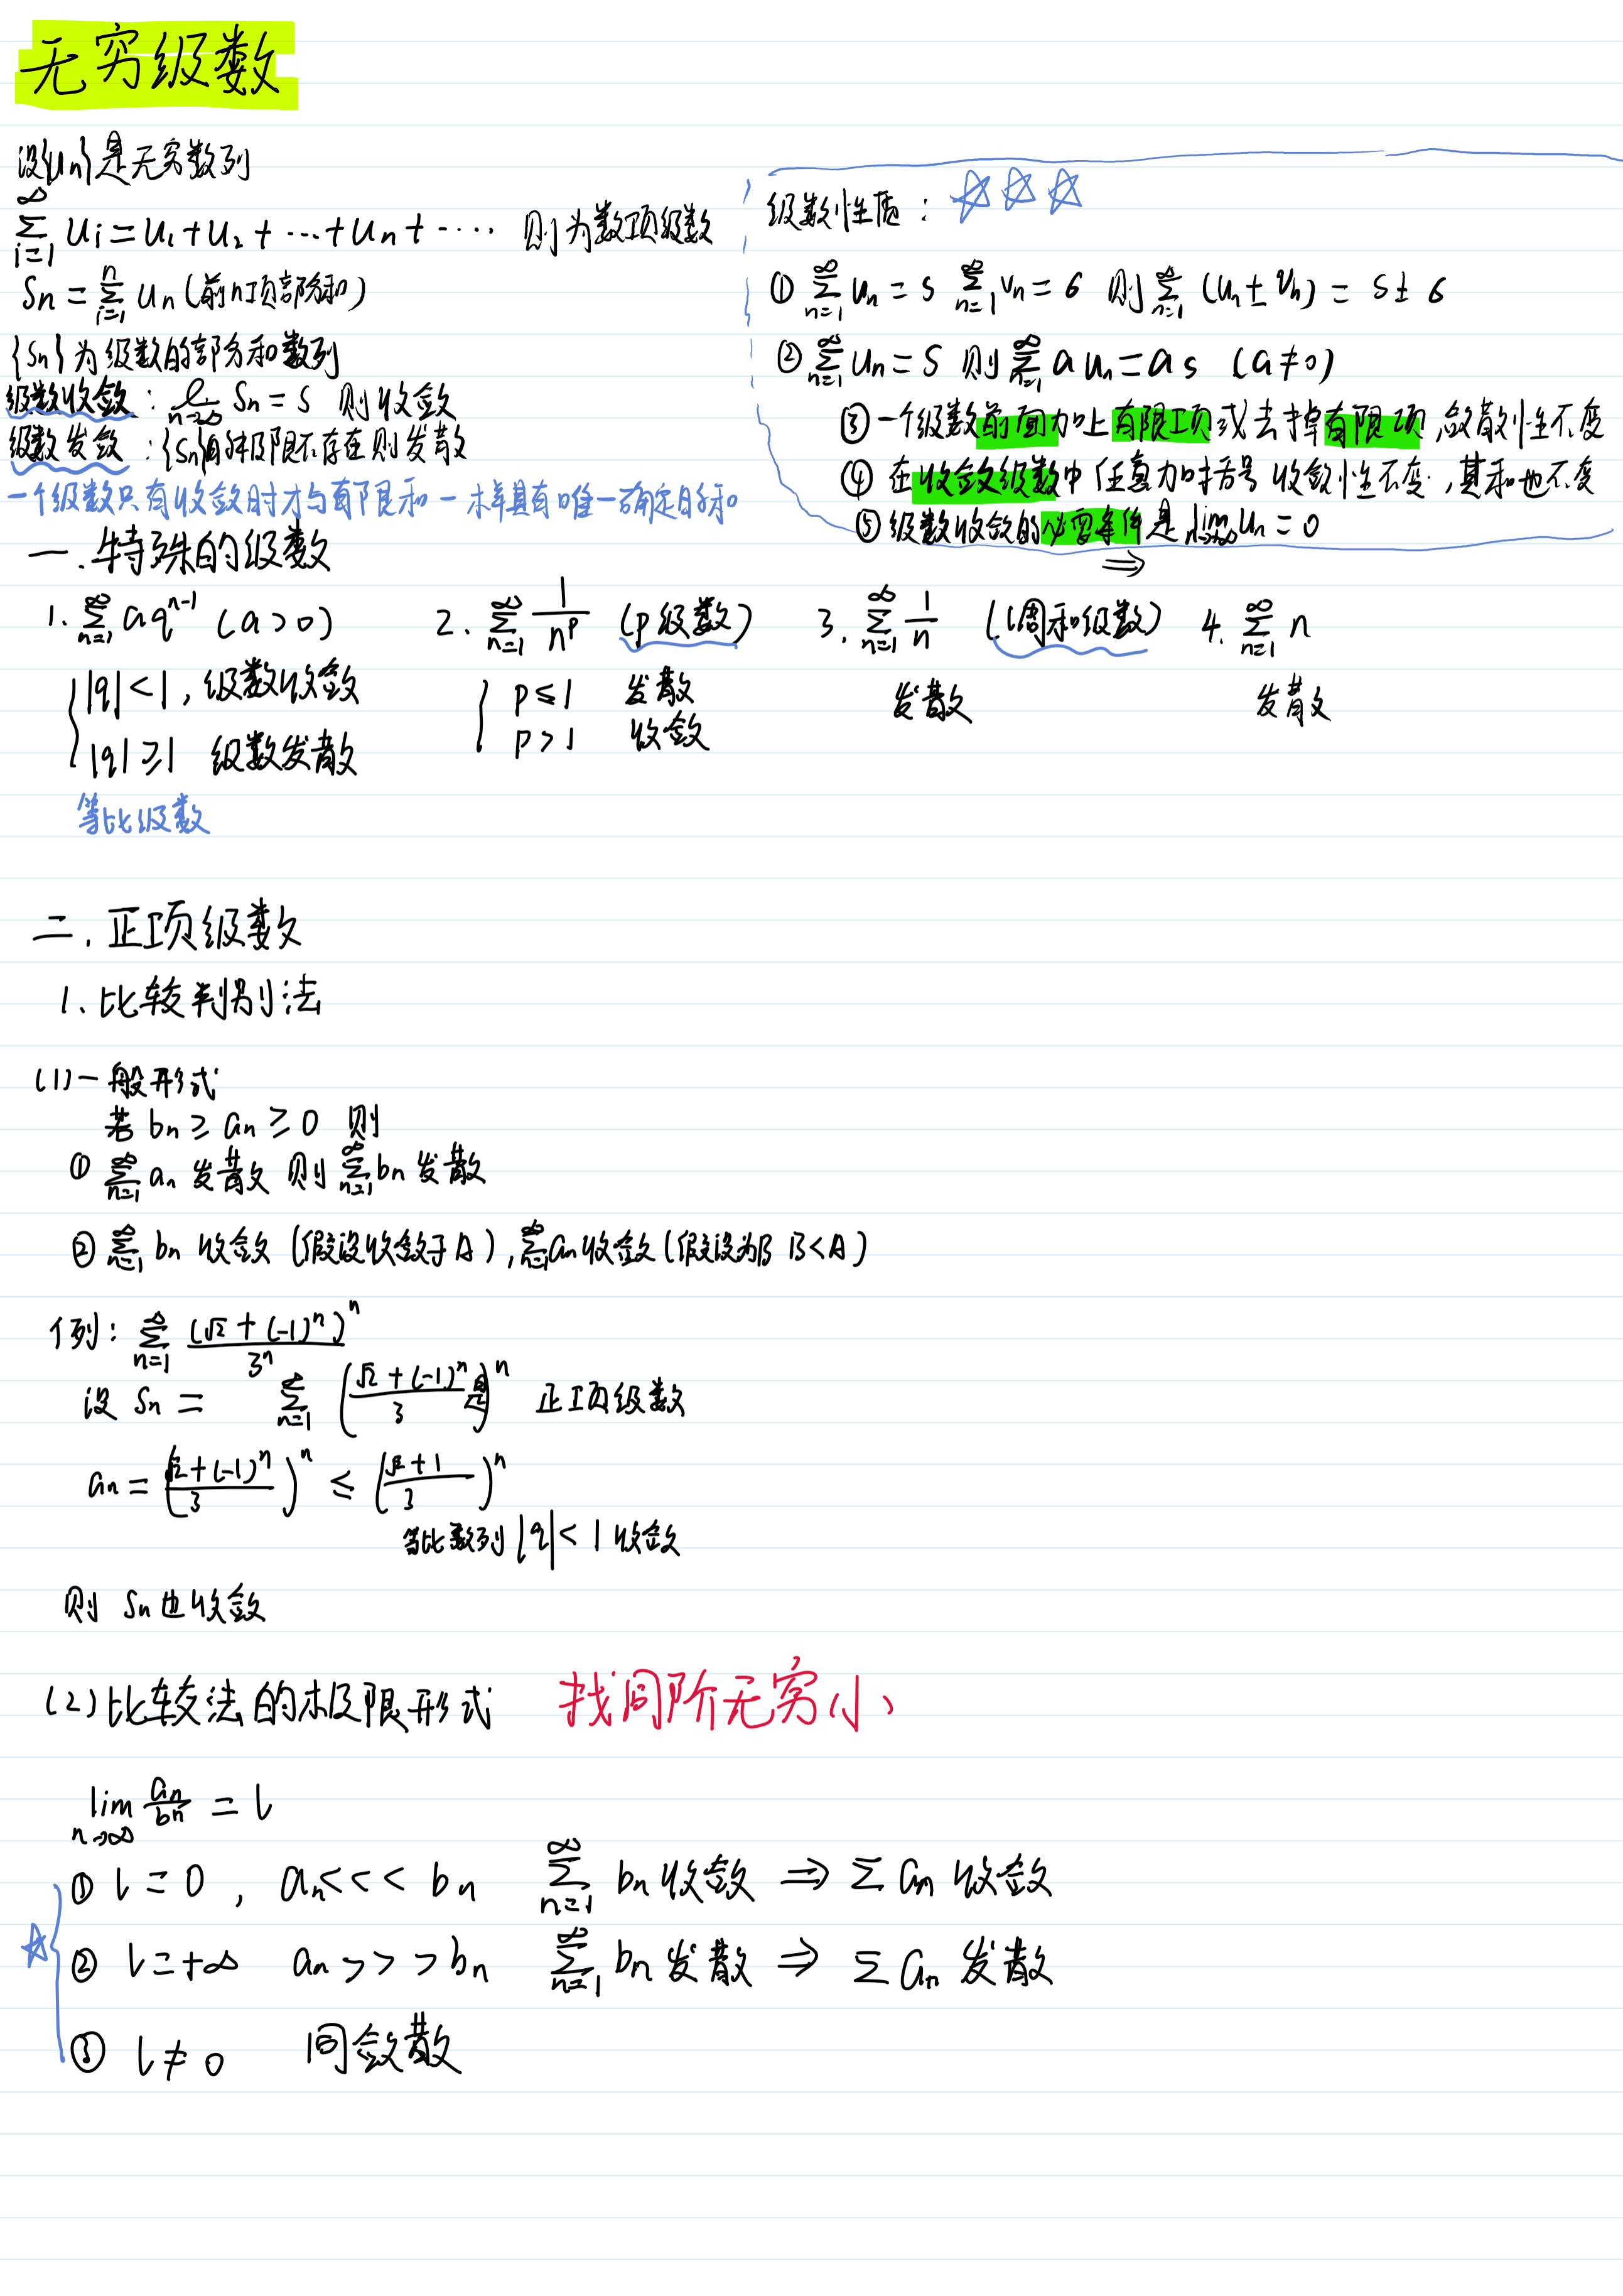 无穷级数
设{un}是无穷数列
∞∑i=1 ui=u1+u2+…+un+…… 则为数项级数
Sn=n∑i=1 un(前n项部分和)
{Sn}为级数的部分和数列
级数收敛: n→∞ Sn=S 则收敛
级数发散:{Sn}的极限不存在则发散
一个级数只有收敛时才与有限和一样具有唯一确定的和
级数性质: ☆☆☆
① ∞∑n=1 un=s ∞∑n=1 vn=6 则∞∑n=1 (un±vn)=s±6
② ∞∑n=1 un=S 则∞∑n=1 a un=as (a≠0)
③一个级数前面加上有限项或去掉有限项,敛散性不变
④在收敛级数中任意加括号 收敛性不变,其和也不变
⑤级数收敛的必要条件是lim n→∞ un=0
⇒
一.特殊的级数
1. ∞∑n=1 aq^(n-1) (a>0)
|q|<1,级数收敛
|q|≥1 级数发散
等比级数
2. ∞∑n=1 1/n^p (p级数)
p≤1 发散
p>1 收敛
3. ∞∑n=1 1/n (调和级数)
发散
4. ∞∑n=1 n
发散
二.正项级数
1.比较判别法
(1)一般形式
若 bn≥an≥0 则
① ∞∑n=1 an 发散 则∞∑n=1 bn 发散
② ∞∑n=1 bn 收敛(假设收敛于A),∞∑n=1 an收敛(假设为B B<A)
例: ∞∑n=1 (√2+(-1)^n)^n/3^n
设 Sn= ∞∑n=1 ((√2+(-1)^n)/3)^n 是 正项级数
an=((√2+(-1)^n)/3)^n ≤ ((√2+1)/3)^n
等比数列|q|<1收敛
则 Sn也收敛
(2)比较法的极限形式 找同阶无穷小
lim n→∞ an/bn = l
① l=0, an<<<bn ∞∑n=1 bn收敛 ⇒ ∑an 收敛
② l=+∞ an>>>bn ∞∑n=1 bn发散 ⇒ ∑an 发散
③ l≠0 同敛散